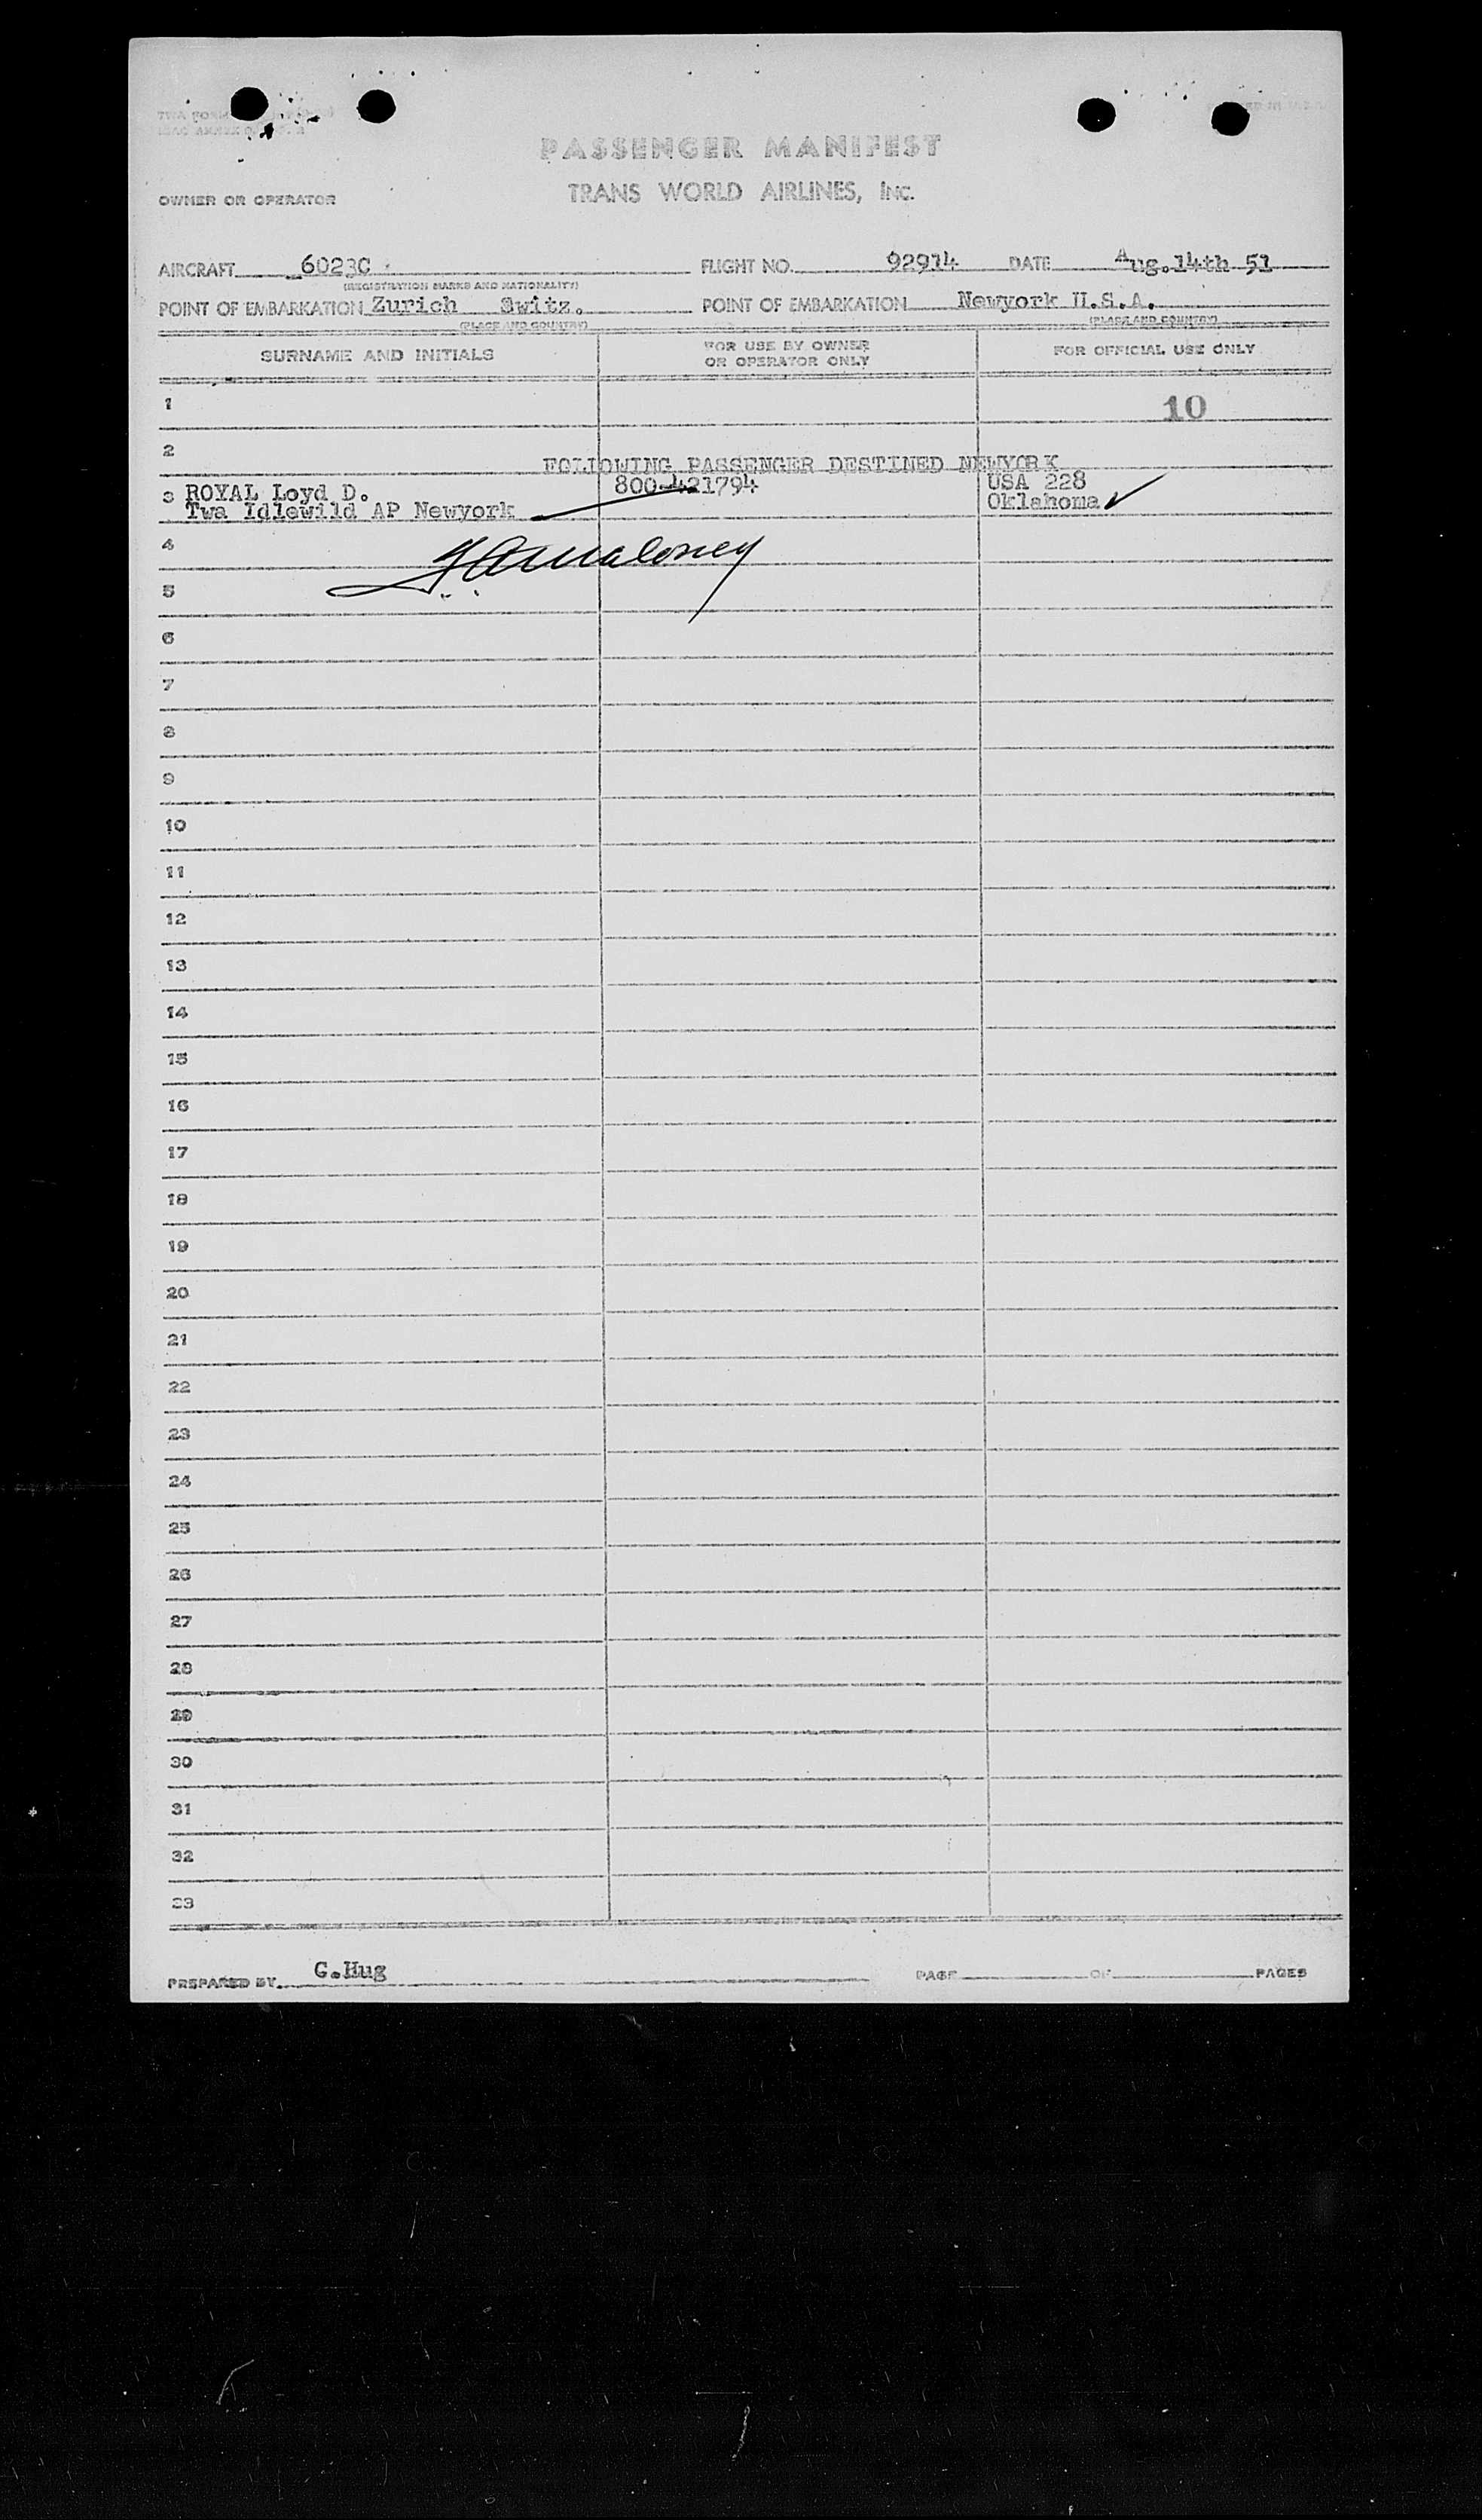 TWA FORM
PASSENGER MANIFEST
TRANS WORLD AIRLINES, INC.
OWNER OR OPERATOR
AIRCRAFT 6023C FLIGHT NO. 92914 DATE Aug.14th 51
(REGISTRATION MARKS AND NATIONALITY)
POINT OF EMBARKATION Zurich Switz. POINT OF EMBARKATION Newyork U.S.A.
(PLACE AND COUNTRY) (PLACE AND COUNTRY)
SURNAME AND INITIALS FOR USE BY OWNER OR OPERATOR ONLY FOR OFFICIAL USE ONLY
1 10
2
FOLLOWING PASSENGER DESTINED NEWYORK
3 ROYAL Loyd D. 800-421794 USA 228
Twa Idlewild AP Newyork Oklahoma
4
Maloney
5
6
7
8
9
10
11
12
13
14
15
16
17
18
19
20
21
22
23
24
25
26
27
28
29
30
31
32
33
PREPARED BY G.Hug PAGE OF PAGES